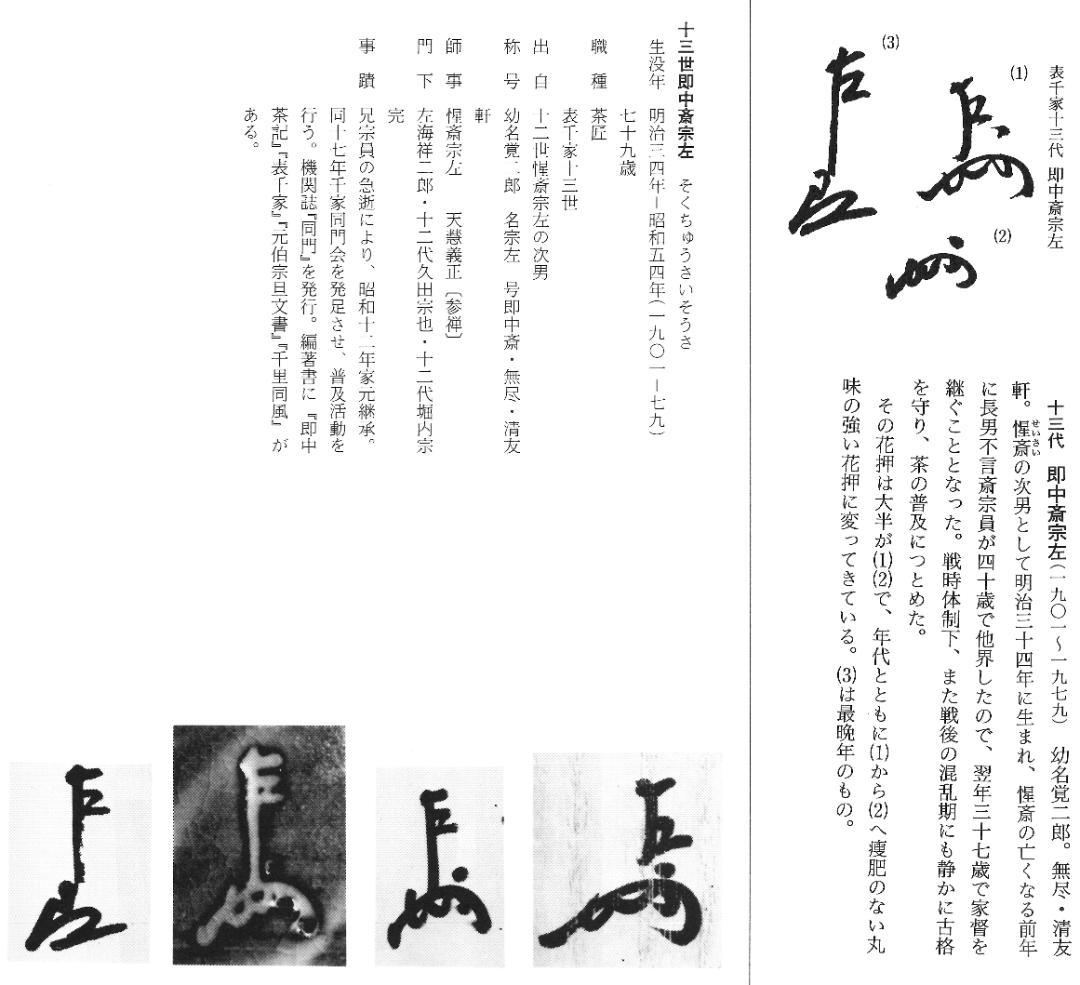 表千家十三代 即中斎宗左
(1)
(2)
(3)
十三代 即中斎宗左(一九〇一〜一九七九) 幼名覚二郎。無尽・清友
軒。惺斎の次男として明治三十四年に生まれ、惺斎の亡くなる前年
せいさい
に長男不言斎宗員が四十歳で他界したので、翌年三十七歳で家督を
継ぐこととなった。戦時体制下、また戦後の混乱期にも静かに古格
を守り、茶の普及につとめた。
その花押は大半が(1)(2)で、年代とともに(1)から(2)へ痩肥のない丸
味の強い花押に変ってきている。(3)は最晩年のもの。
十三世即中斎宗左 そくちゅうさいそうさ
生没年 明治三四年−昭和五四年(一九〇一−七九)
七十九歳
職種 茶匠
表千家十三世
出自 十二世惺斎宗左の次男
称号 幼名覚二郎 名宗左 号即中斎・無尽・清友
軒
師事 惺斎宗左 天慧義正〔参禅〕
門下 左海祥二郎・十二代久田宗也・十二代堀内宗
完
事蹟 兄宗員の急逝により、昭和十二年家元継承。
同十七年千家同門会を発足させ、普及活動を
行う。機関誌『同門』を発行。編著書に『即中
茶記』『表千家』『元伯宗旦文書』『千里同風』が
ある。